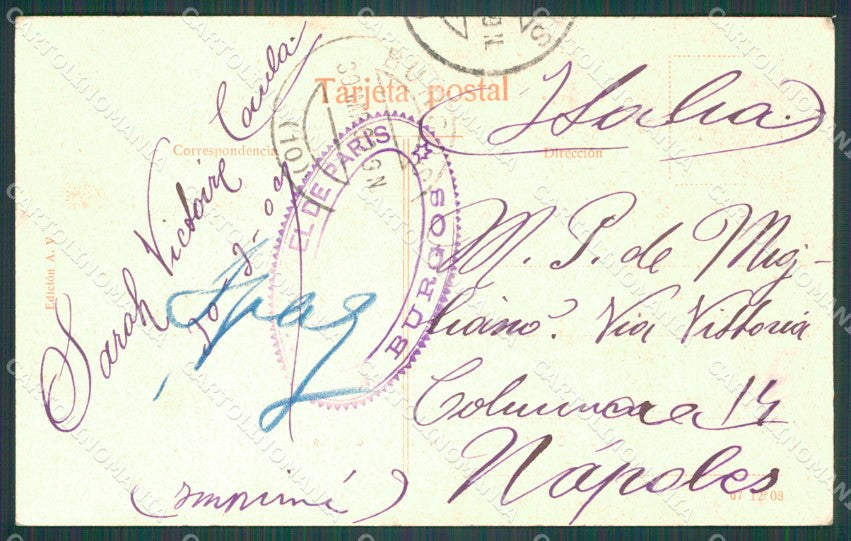 Tarjeta postal
Correspondencia
Dirección
Italia
Sarah Victoire
30-3-09
(Imprimé)
Edición A. V.
EL DE PARIS
BURGOS
M. P. de Mig-
liano. Via Vittoria
Colonna 14
Nápoles
07 12'08
CARTOLINOMANIA